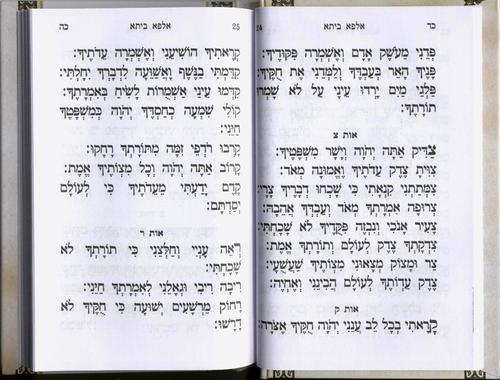 כד
אלפא ביתא
24
פְּדֵנִי מֵעֹשֶׁק אָדָם וְאֶשְׁמְרָה פִּקּוּדֶיךָ:
פָּנֶיךָ הָאֵר בְּעַבְדֶּךָ וְלַמְּדֵנִי אֶת חֻקֶּיךָ:
פַּלְגֵי מַיִם יָרְדוּ עֵינָי עַל לֹא שָׁמְרוּ
תוֹרָתֶךָ:
אות צ
צַדִּיק אַתָּה יְהֹוָה וְיָשָׁר מִשְׁפָּטֶיךָ:
צִוִּיתָ צֶדֶק עֵדֹתֶיךָ וֶאֱמוּנָה מְאֹד:
צִמְּתַתְנִי קִנְאָתִי כִּי שָׁכְחוּ דְבָרֶיךָ צָרָי:
צְרוּפָה אִמְרָתְךָ מְאֹד וְעַבְדְּךָ אֲהֵבָהּ:
צָעִיר אָנֹכִי וְנִבְזֶה פִּקֻּדֶיךָ לֹא שָׁכָחְתִּי:
צִדְקָתְךָ צֶדֶק לְעוֹלָם וְתוֹרָתְךָ אֱמֶת:
צַר וּמָצוֹק מְצָאוּנִי מִצְוֹתֶיךָ שַׁעֲשֻׁעָי:
צֶדֶק עֵדְוֹתֶיךָ לְעוֹלָם הֲבִינֵנִי וְאֶחְיֶה:
אות ק
קָרָאתִי בְכָל לֵב עֲנֵנִי יְהֹוָה חֻקֶּיךָ אֶצֹּרָה:
25
אלפא ביתא
כה
קְרָאתִיךָ הוֹשִׁיעֵנִי וְאֶשְׁמְרָה עֵדֹתֶיךָ:
קִדַּמְתִּי בַנֶּשֶׁף וָאֲשַׁוֵּעָה לִדְבָרְךָ יִחָלְתִּי:
קִדְּמוּ עֵינַי אַשְׁמֻרוֹת לָשִׂיחַ בְּאִמְרָתֶךָ:
קוֹלִי שִׁמְעָה כְחַסְדֶּךָ יְהֹוָה כְּמִשְׁפָּטֶךָ
חַיֵּנִי:
קָרְבוּ רֹדְפֵי זִמָּה מִתּוֹרָתְךָ רָחָקוּ:
קָרוֹב אַתָּה יְהֹוָה וְכָל מִצְוֹתֶיךָ אֱמֶת:
קֶדֶם יָדַעְתִּי מֵעֵדֹתֶיךָ כִּי לְעוֹלָם
יְסַדְתָּם:
אות ר
רְאֵה עָנְיִי וְחַלְּצֵנִי כִּי תוֹרָתְךָ לֹא
שָׁכָחְתִּי:
רִיבָה רִיבִי וּגְאָלֵנִי לְאִמְרָתְךָ חַיֵּנִי:
רָחוֹק מֵרְשָׁעִים יְשׁוּעָה כִּי חֻקֶּיךָ לֹא
דָרָשׁוּ: